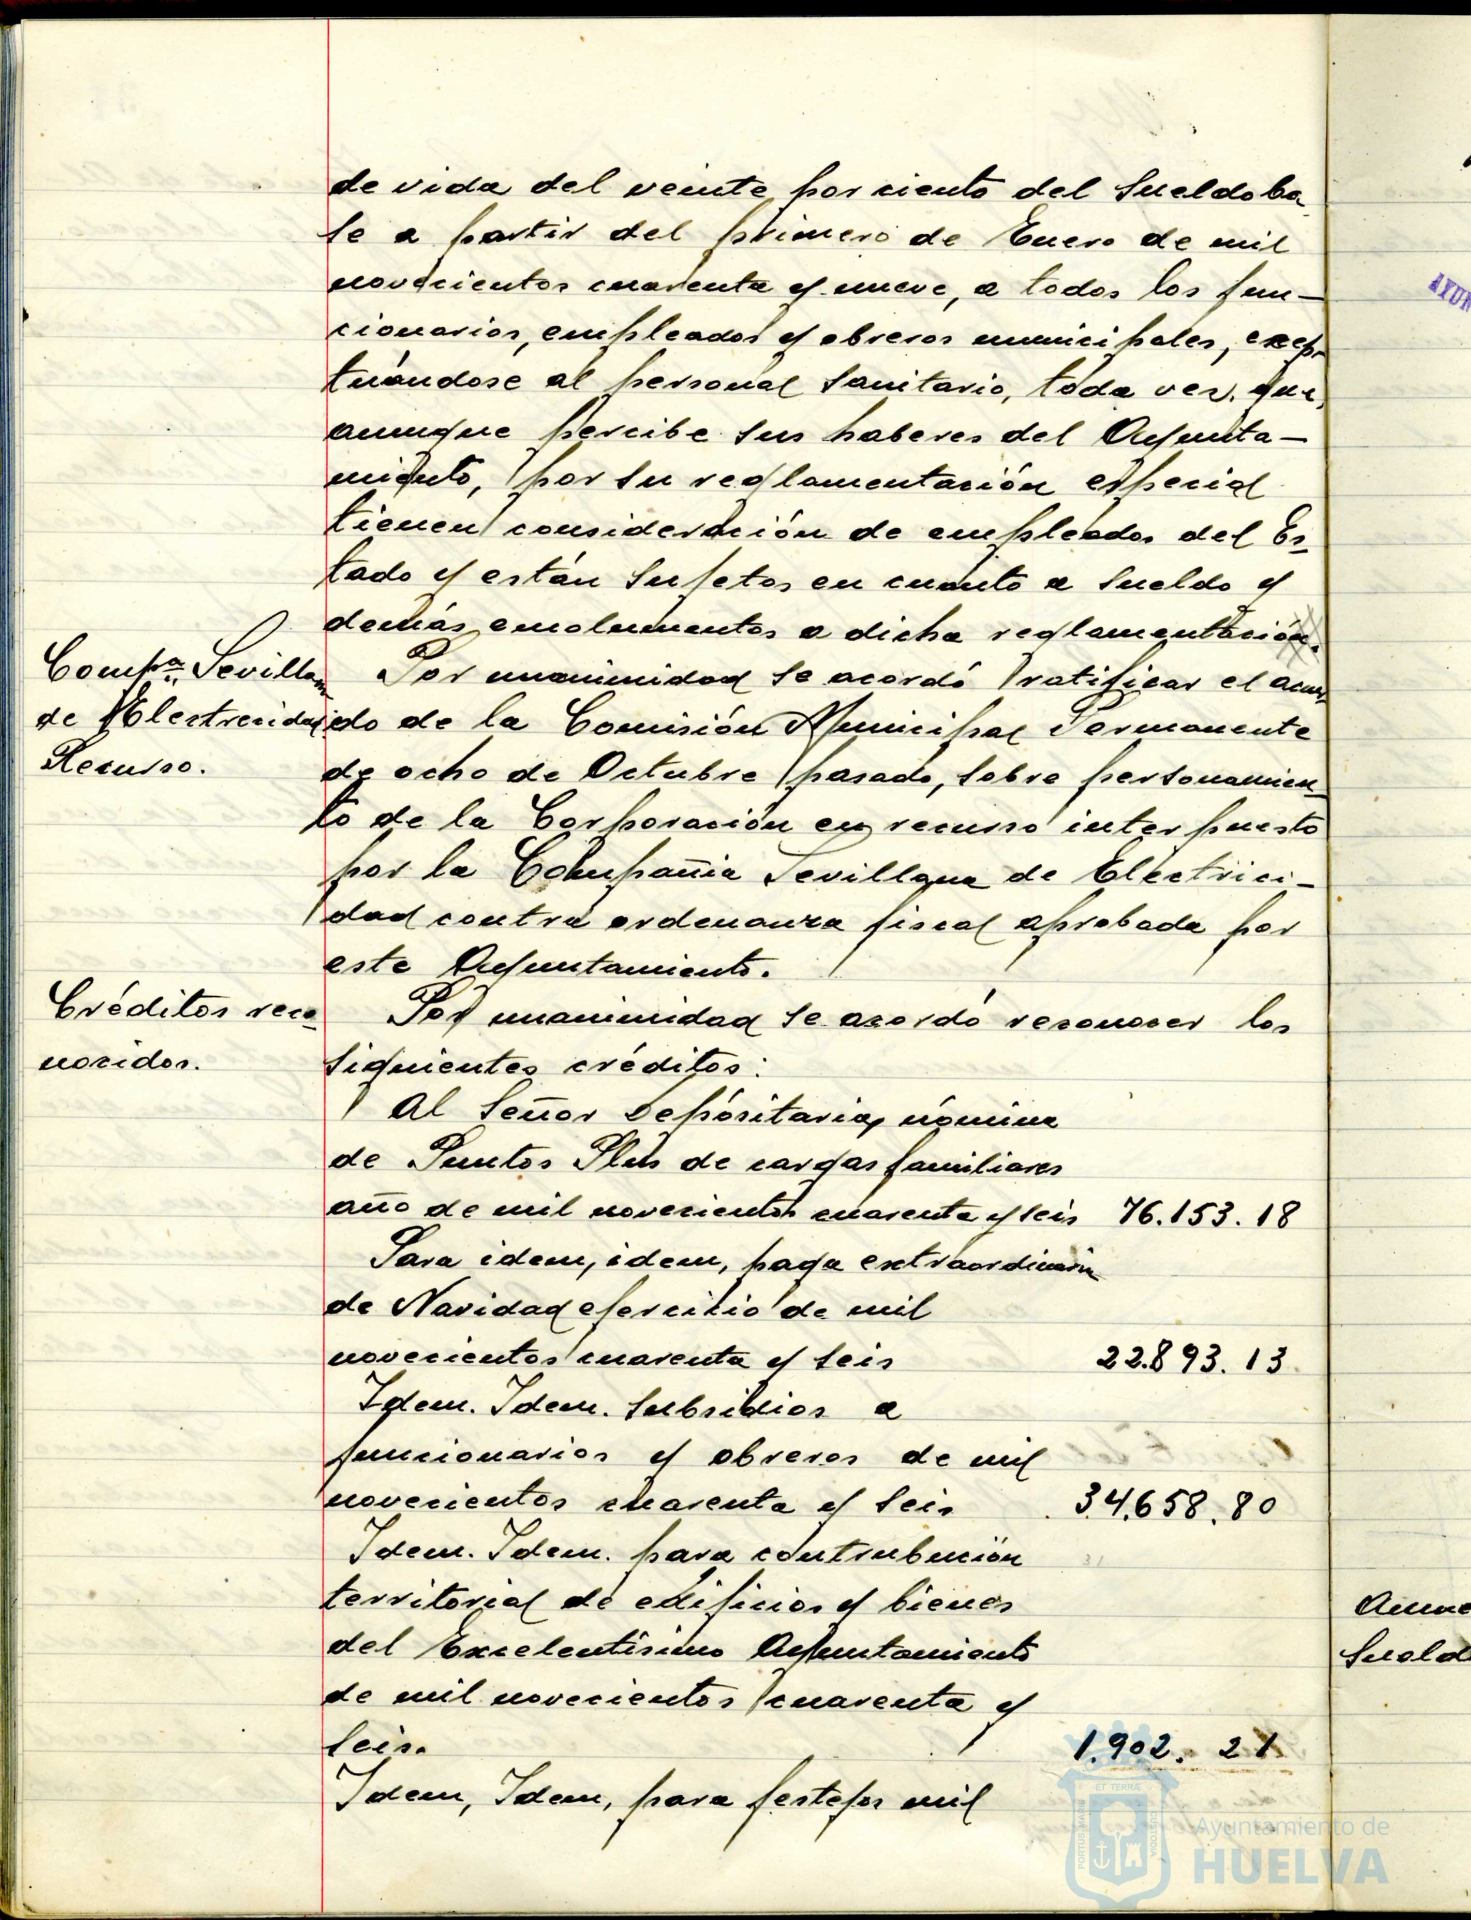 de vida del veinte por ciento del sueldo ba-
se a partir del primero de Enero de mil
novecientos cuarenta y nueve, a todos los fun-
cionarios, empleados y obreros municipales, excep-
tuándose al personal sanitario, toda vez que,
aunque percibe sus haberes del Ayunta-
miento, por su reglamentación especial
tienen consideración de empleados del Es-
tado y están sujetos en cuanto a sueldo y
demás emolumentos a dicha reglamentación.
Compª Sevillana
de Electrecidad
Recurso.
Por unanimidad se acordó ratificar el acuer-
do de la Comisión Municipal Permanente
de ocho de Octubre pasado, sobre personamien-
to de la Corporación en recurso interpuesto
por la Compañia Sevillana de Electrici-
dad contra ordenanza fiscal aprobada por
este Ayuntamiento.
Créditos reco-
nocidos.
Por unanimidad se acordó reconocer los
siguientes créditos:
Al Señor Depósitario, nómina
de Puntos Plus de cargas familiares
año de mil novecientos cuarenta y seis 76.153.18
Para idem, idem, paga extraordinaria
de Navidad ejercicio de mil
novecientos cuarenta y seis 22.893.13
Idem. Idem. subsidios a
funcionarios y obreros de mil
novecientos cuarenta y seis 34.658.80
Idem. Idem. para contribución
territorial de edificios y bienes
del Excelentísimo Ayuntamiento
de mil novecientos cuarenta y
seis. 1.902.21
Idem, Idem, para festejos mil
AYUN
Sueld
ET TERRÆ
PORTUS MARIS
CUSTODIA
Ayuntamiento de
HUELVA